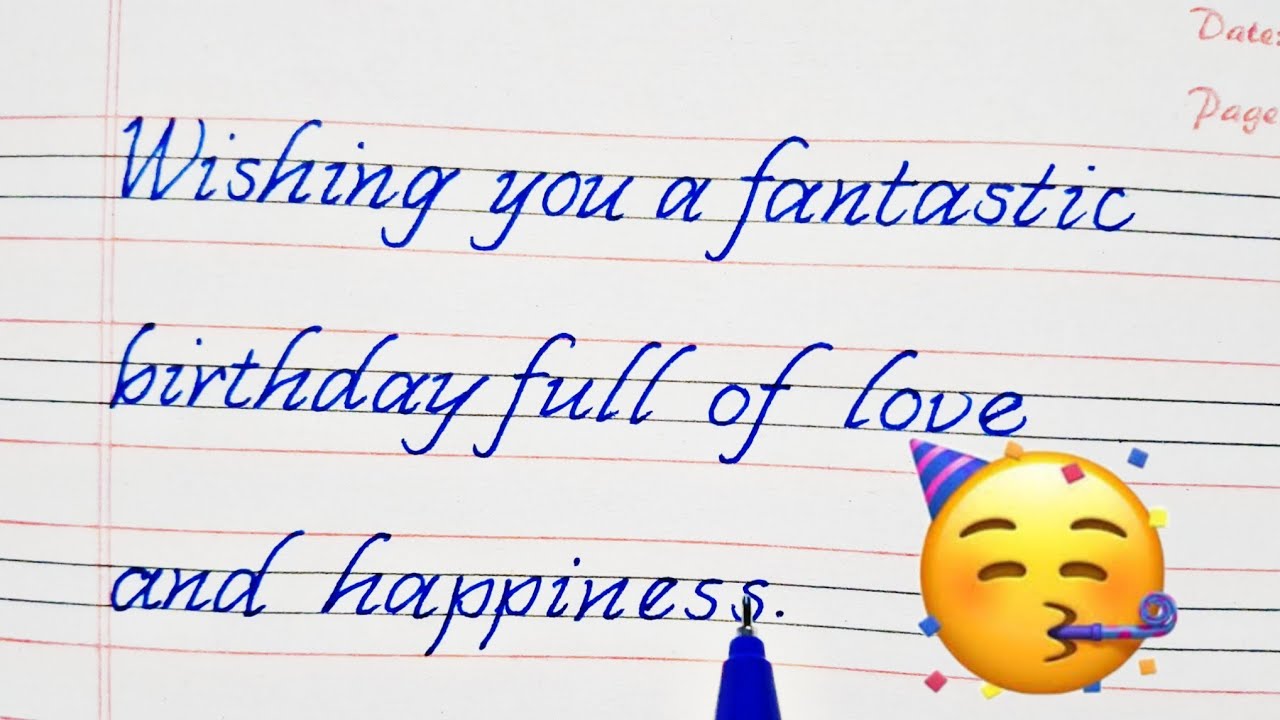 Date:
Page
Wishing you a fantastic
birthday full of love
and happiness.